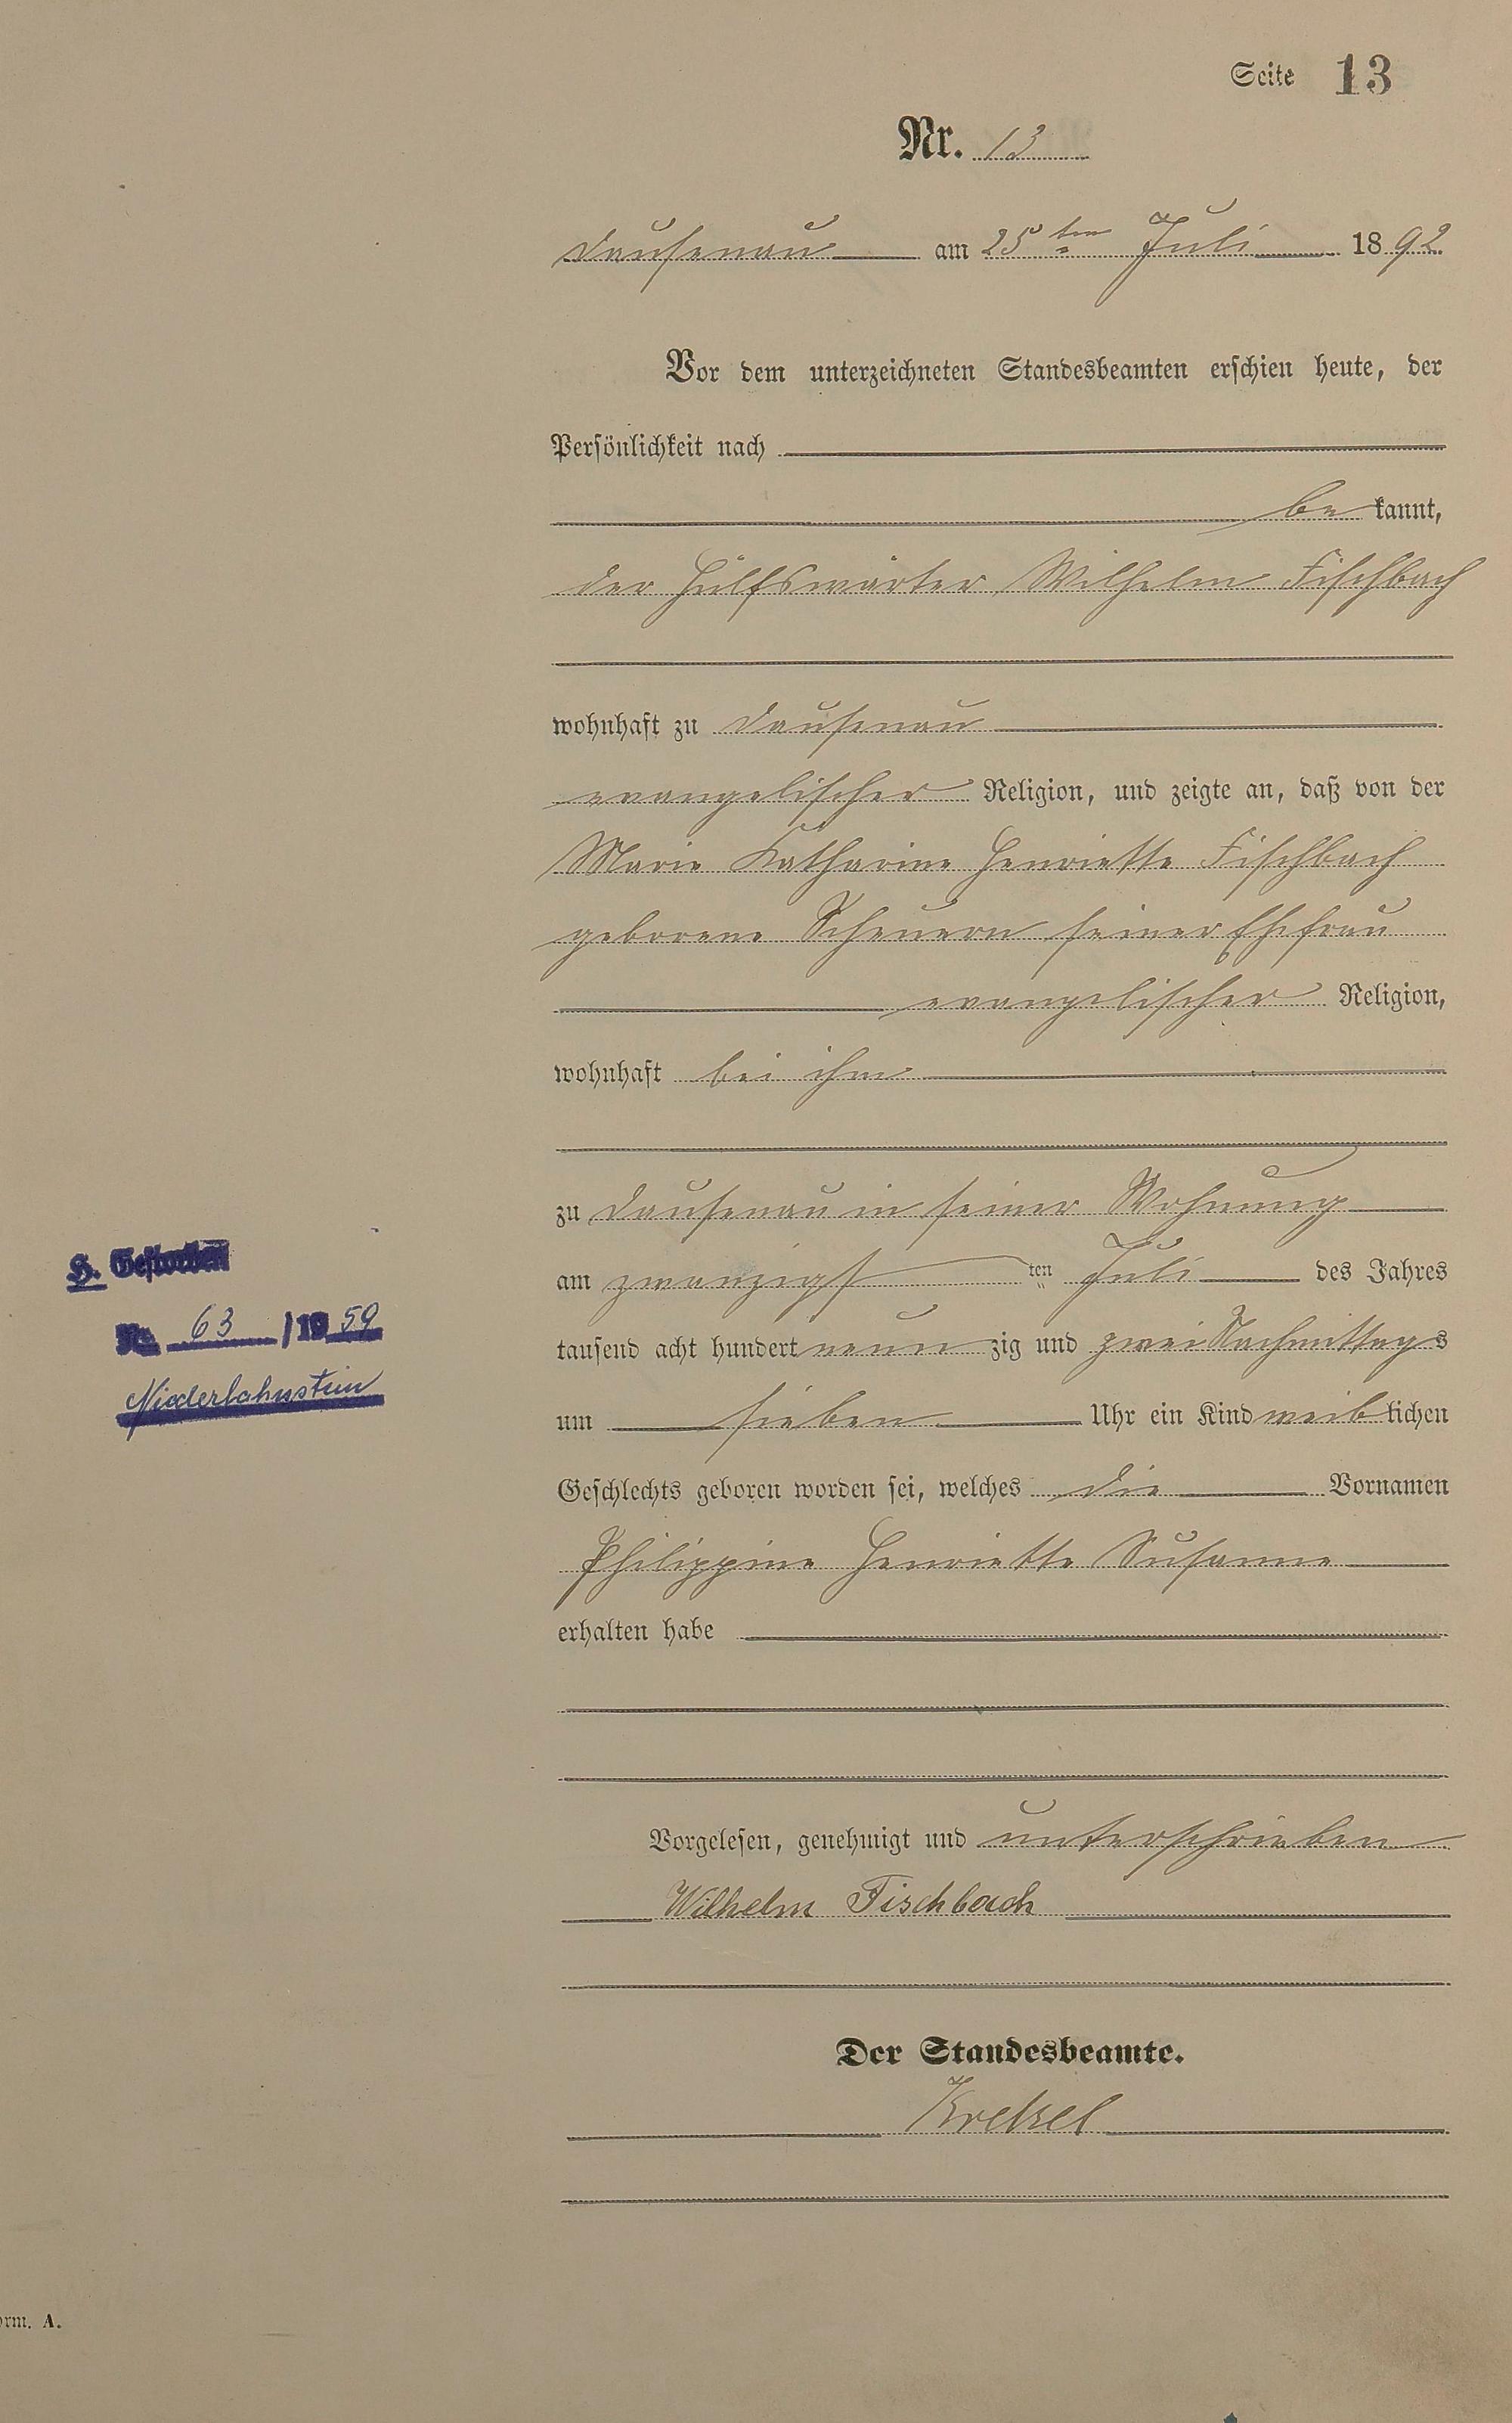 Seite 13
Nr. 13
Dausenau am 25ten Juli 1892
Vor dem unterzeichneten Standesbeamten erschien heute, der
Persönlichkeit nach
be kannt,
der Hülfswärter Wilhelm Fischbach
wohnhaft zu Dausenau
evangelischer Religion, und zeigte an, daß von der
Marie Katharine Henriette Fischbach
geborene Scheuern seiner Ehefrau
evangelischer Religion,
wohnhaft bei ihm
zu Dausenau in seiner Wohnung
am zwanzigst ten Juli des Jahres
tausend acht hundert neun zig und zwei Nachmittags
um sieben Uhr ein Kind weib lichen
Geschlechts geboren worden sei, welches die Vornamen
Philippine Henriette Susanne
erhalten habe
Vorgelesen, genehmigt und unterschrieben
Wilhelm Fischbach
Der Standesbeamte.
H. Gestorben
Nr. 63 /1959
Niederlahnstein
orm. A.